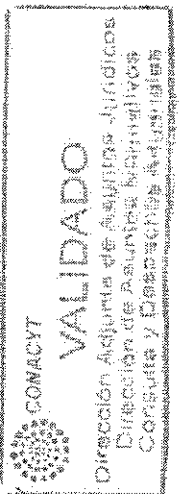 CONACYT
VALIDADO
Dirección Adjunta de Asuntos Jurídicos
Dirección de Asuntos Normativos
Consulta y